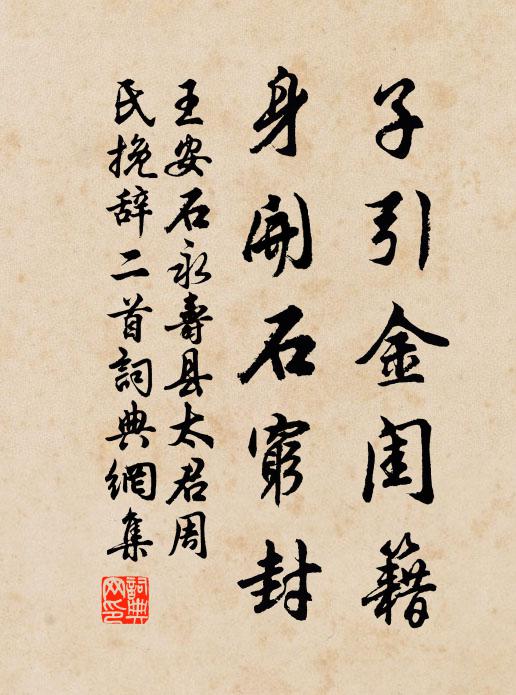 子引金闺籍
身開石窌封
王安石永壽县太君周
氏挽辞二首詞典網集
詞典网印